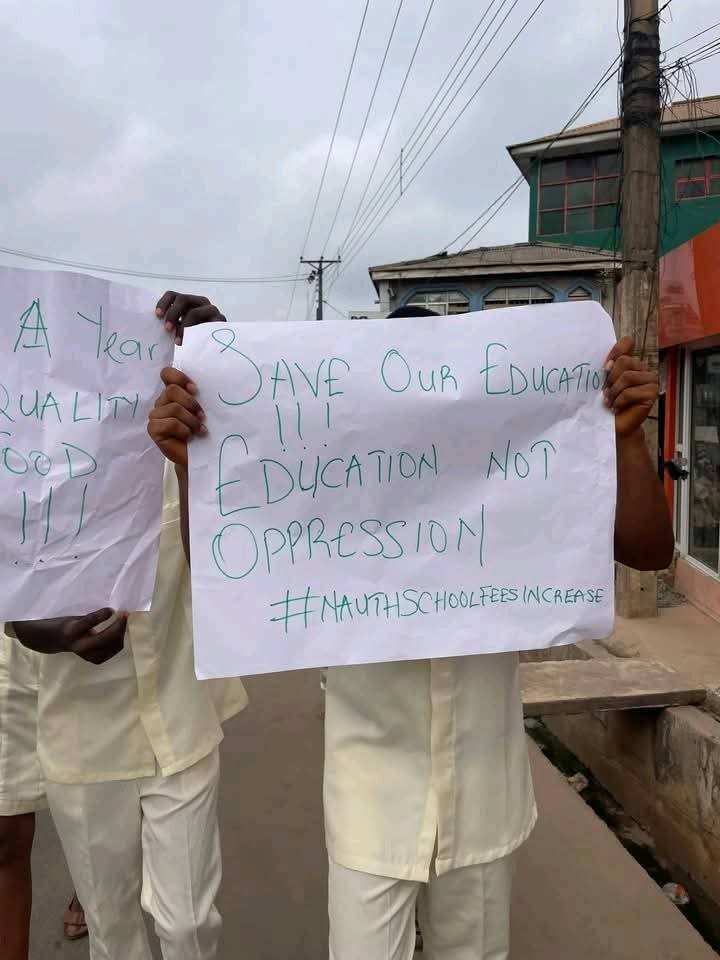 A Year
QUALITY
FOOD
!!!
SAVE OUR EDUCATIO
!!!
EDUCATION NOT
OPPRESSION
#NAUTHSCHOOLFEESINCREASE